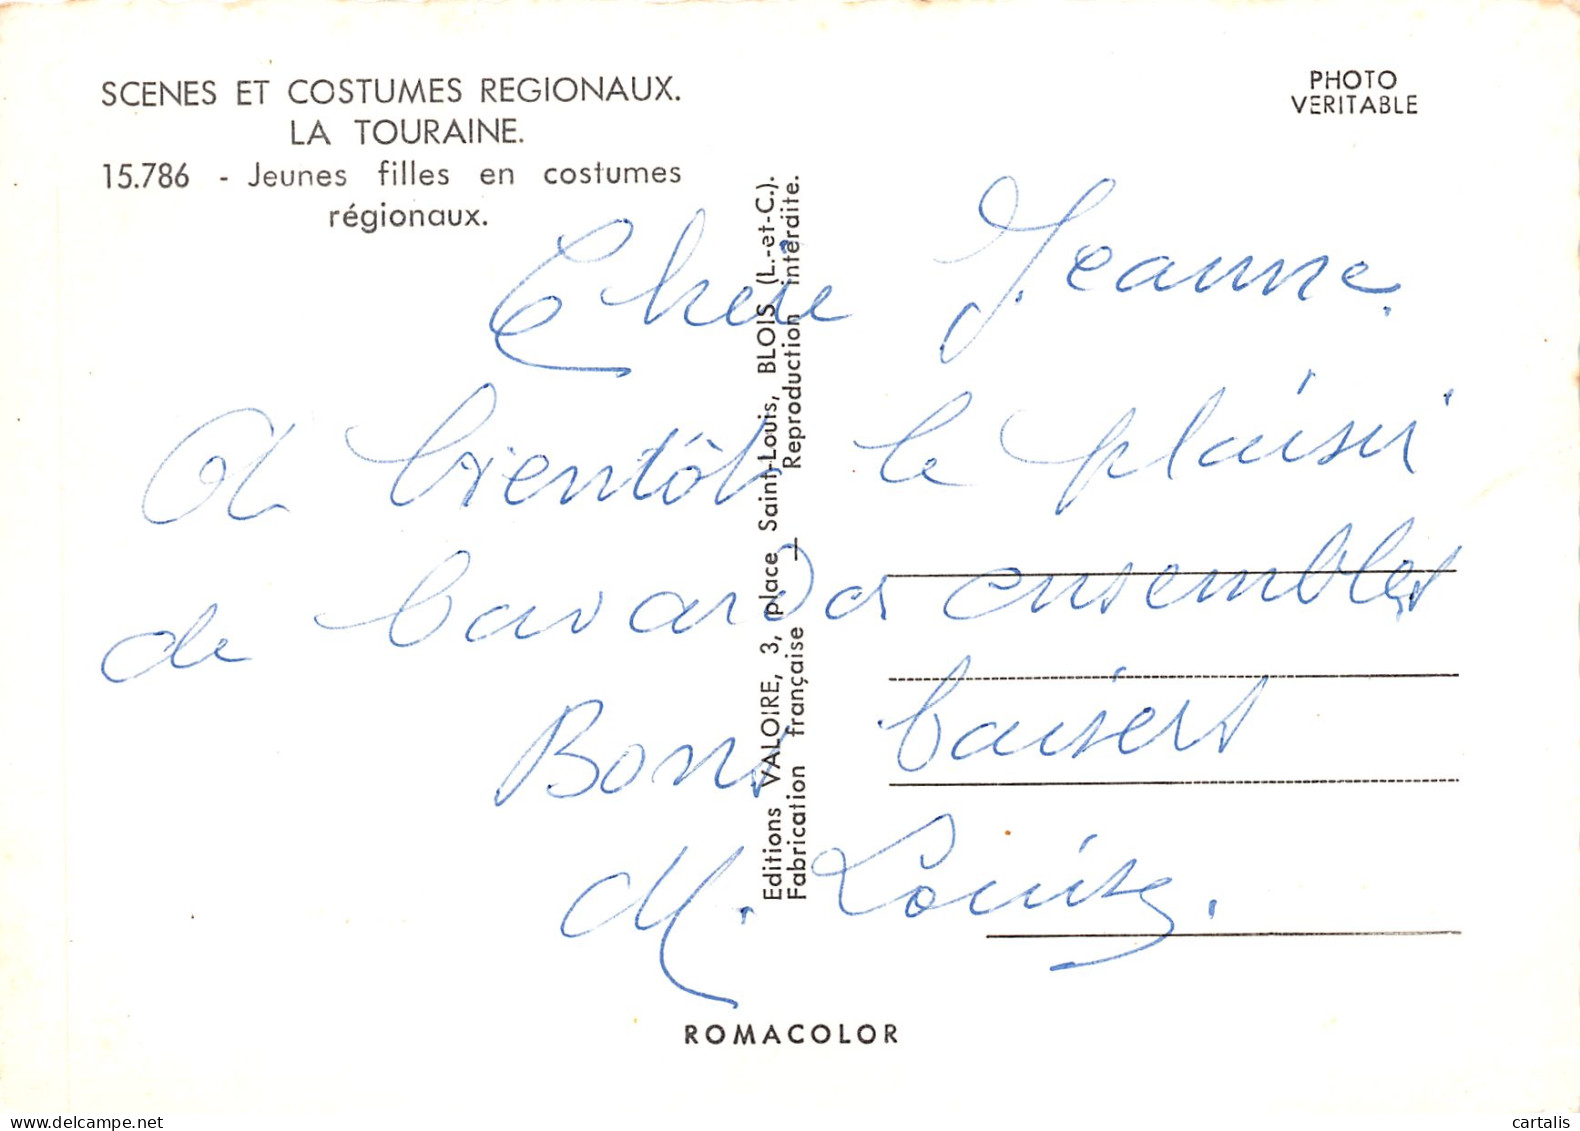 SCENES ET COSTUMES REGIONAUX.
LA TOURAINE.
15.786 - Jeunes filles en costumes
régionaux.
PHOTO
VERITABLE
Chère Jeanne.
A bientôt le plaisir
de bavarder ensembles
Bons baisers
M. Louise.
Editions VALOIRE, 3, place Saint-Louis, BLOIS (L.-et-C.).
Fabrication française — Reproduction interdite.
ROMACOLOR
delcampe.net
cartalis